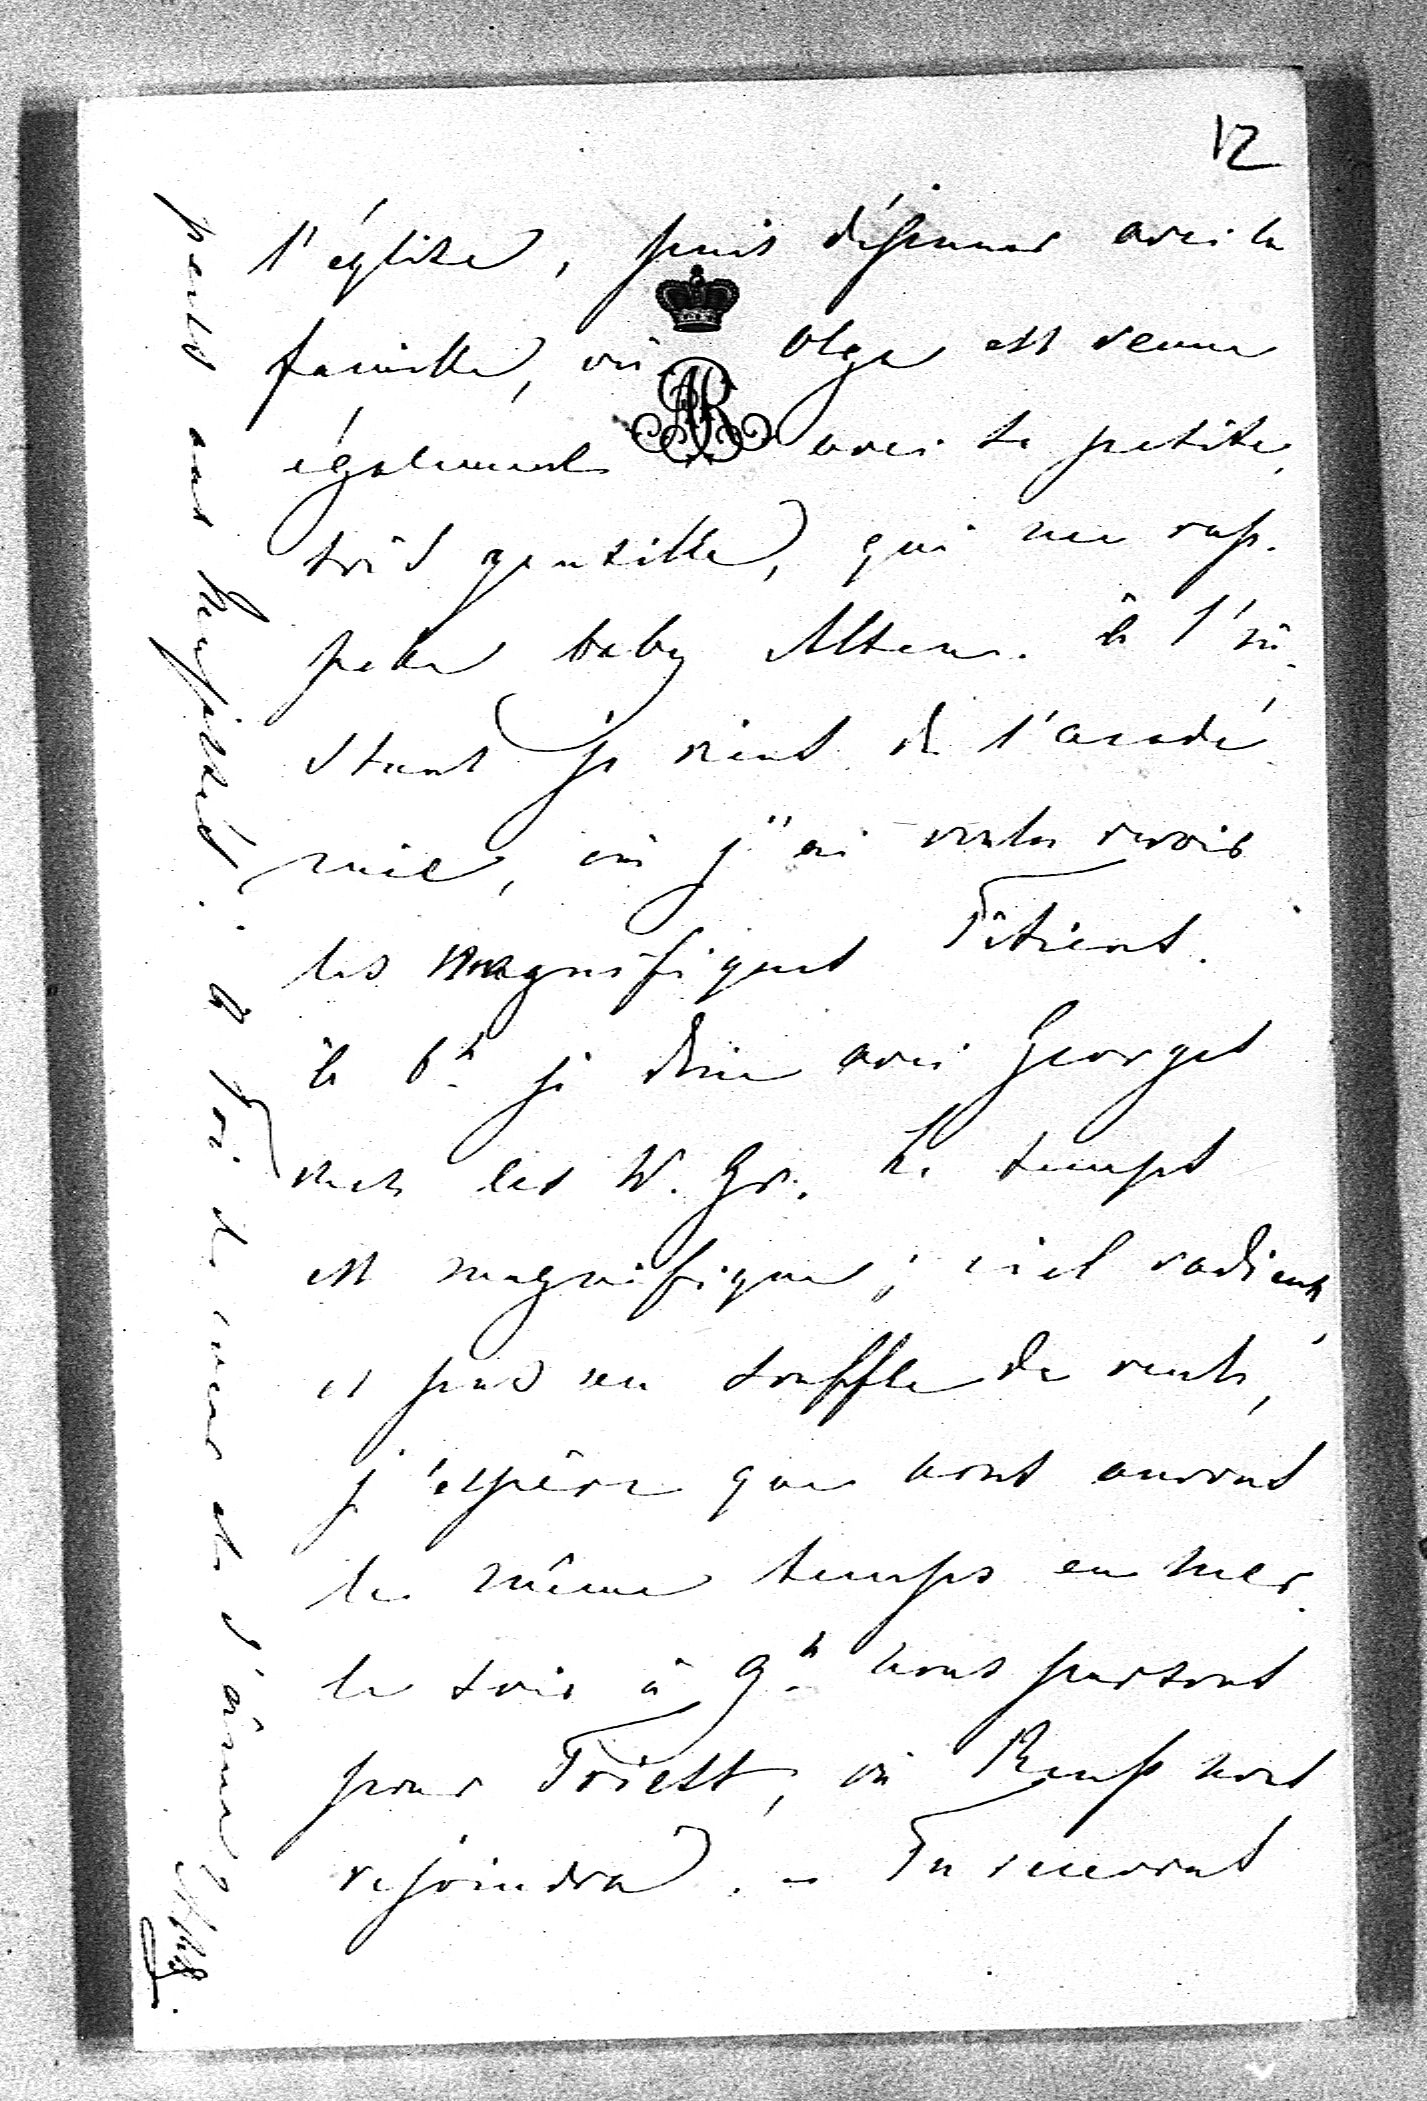 12
l'église, puis déjeuner avec la
famille, où Olga est venue
également avec sa petite,
très gentille, qui me rap-
pelle baby Alten. à l'in-
stant je viens de l'acadé-
mie, où j'ai voulu revoir
les magnifiques Titiens.
à 6h je dîne avec Georges
chez les W. Gr. Le temps
est magnifique; ciel radieux,
et pas un souffle de vent,
j'espère que nous aurons
le même temps en mer.
le soir à 9h nous partons
pour Triest, où Reuss nous
rejoindra. - Tu recevras
à Toi de cœur et d'âme